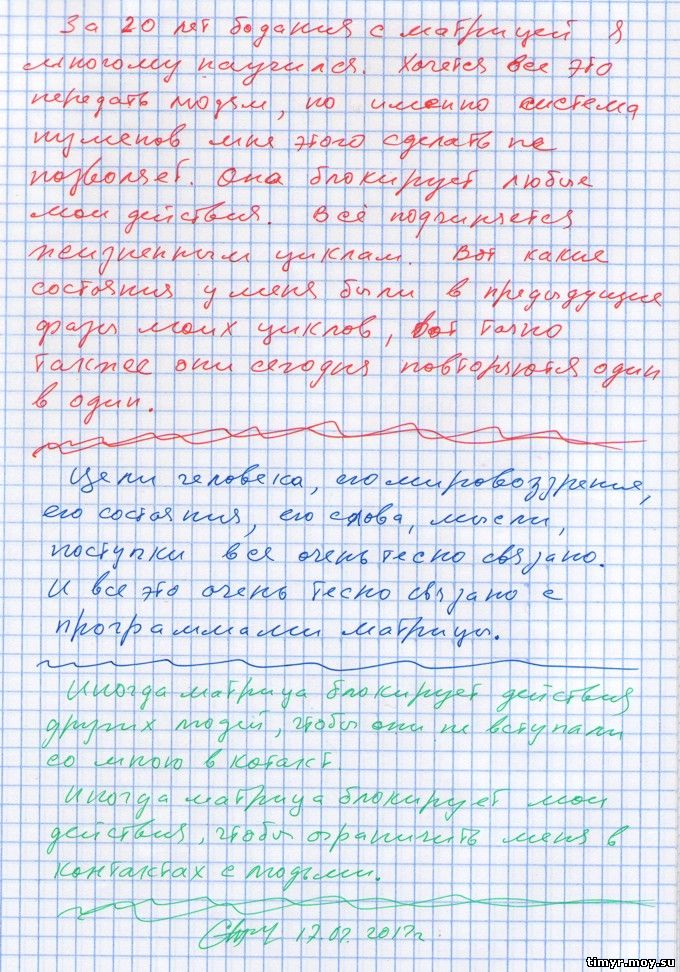 За 20 лет бодания с матрицей я
многому научился. Хочется все это
передать людям, но именно система
нуменов мне этого сделать не
позволяет. Она блокирует любые
мои действия. Всё подчиняется
жизненным циклам. Вот какие
состояния у меня были в предыдущие
фазы моих циклов, вот точно
также они сегодня повторяются один
в один.
Цели человека, его мировоззрения,
его состояния, его слова, мысли,
поступки все очень тесно связано.
И все это очень тесно связано с
программами матрицы.
Иногда матрица блокирует действия
других людей, чтобы они не вступали
со мною в котакт.
Иногда матрица блокирует мои
действия, чтобы ограничить меня в
контактах с людьми.
17.07.2017г.
timyr.moy.su